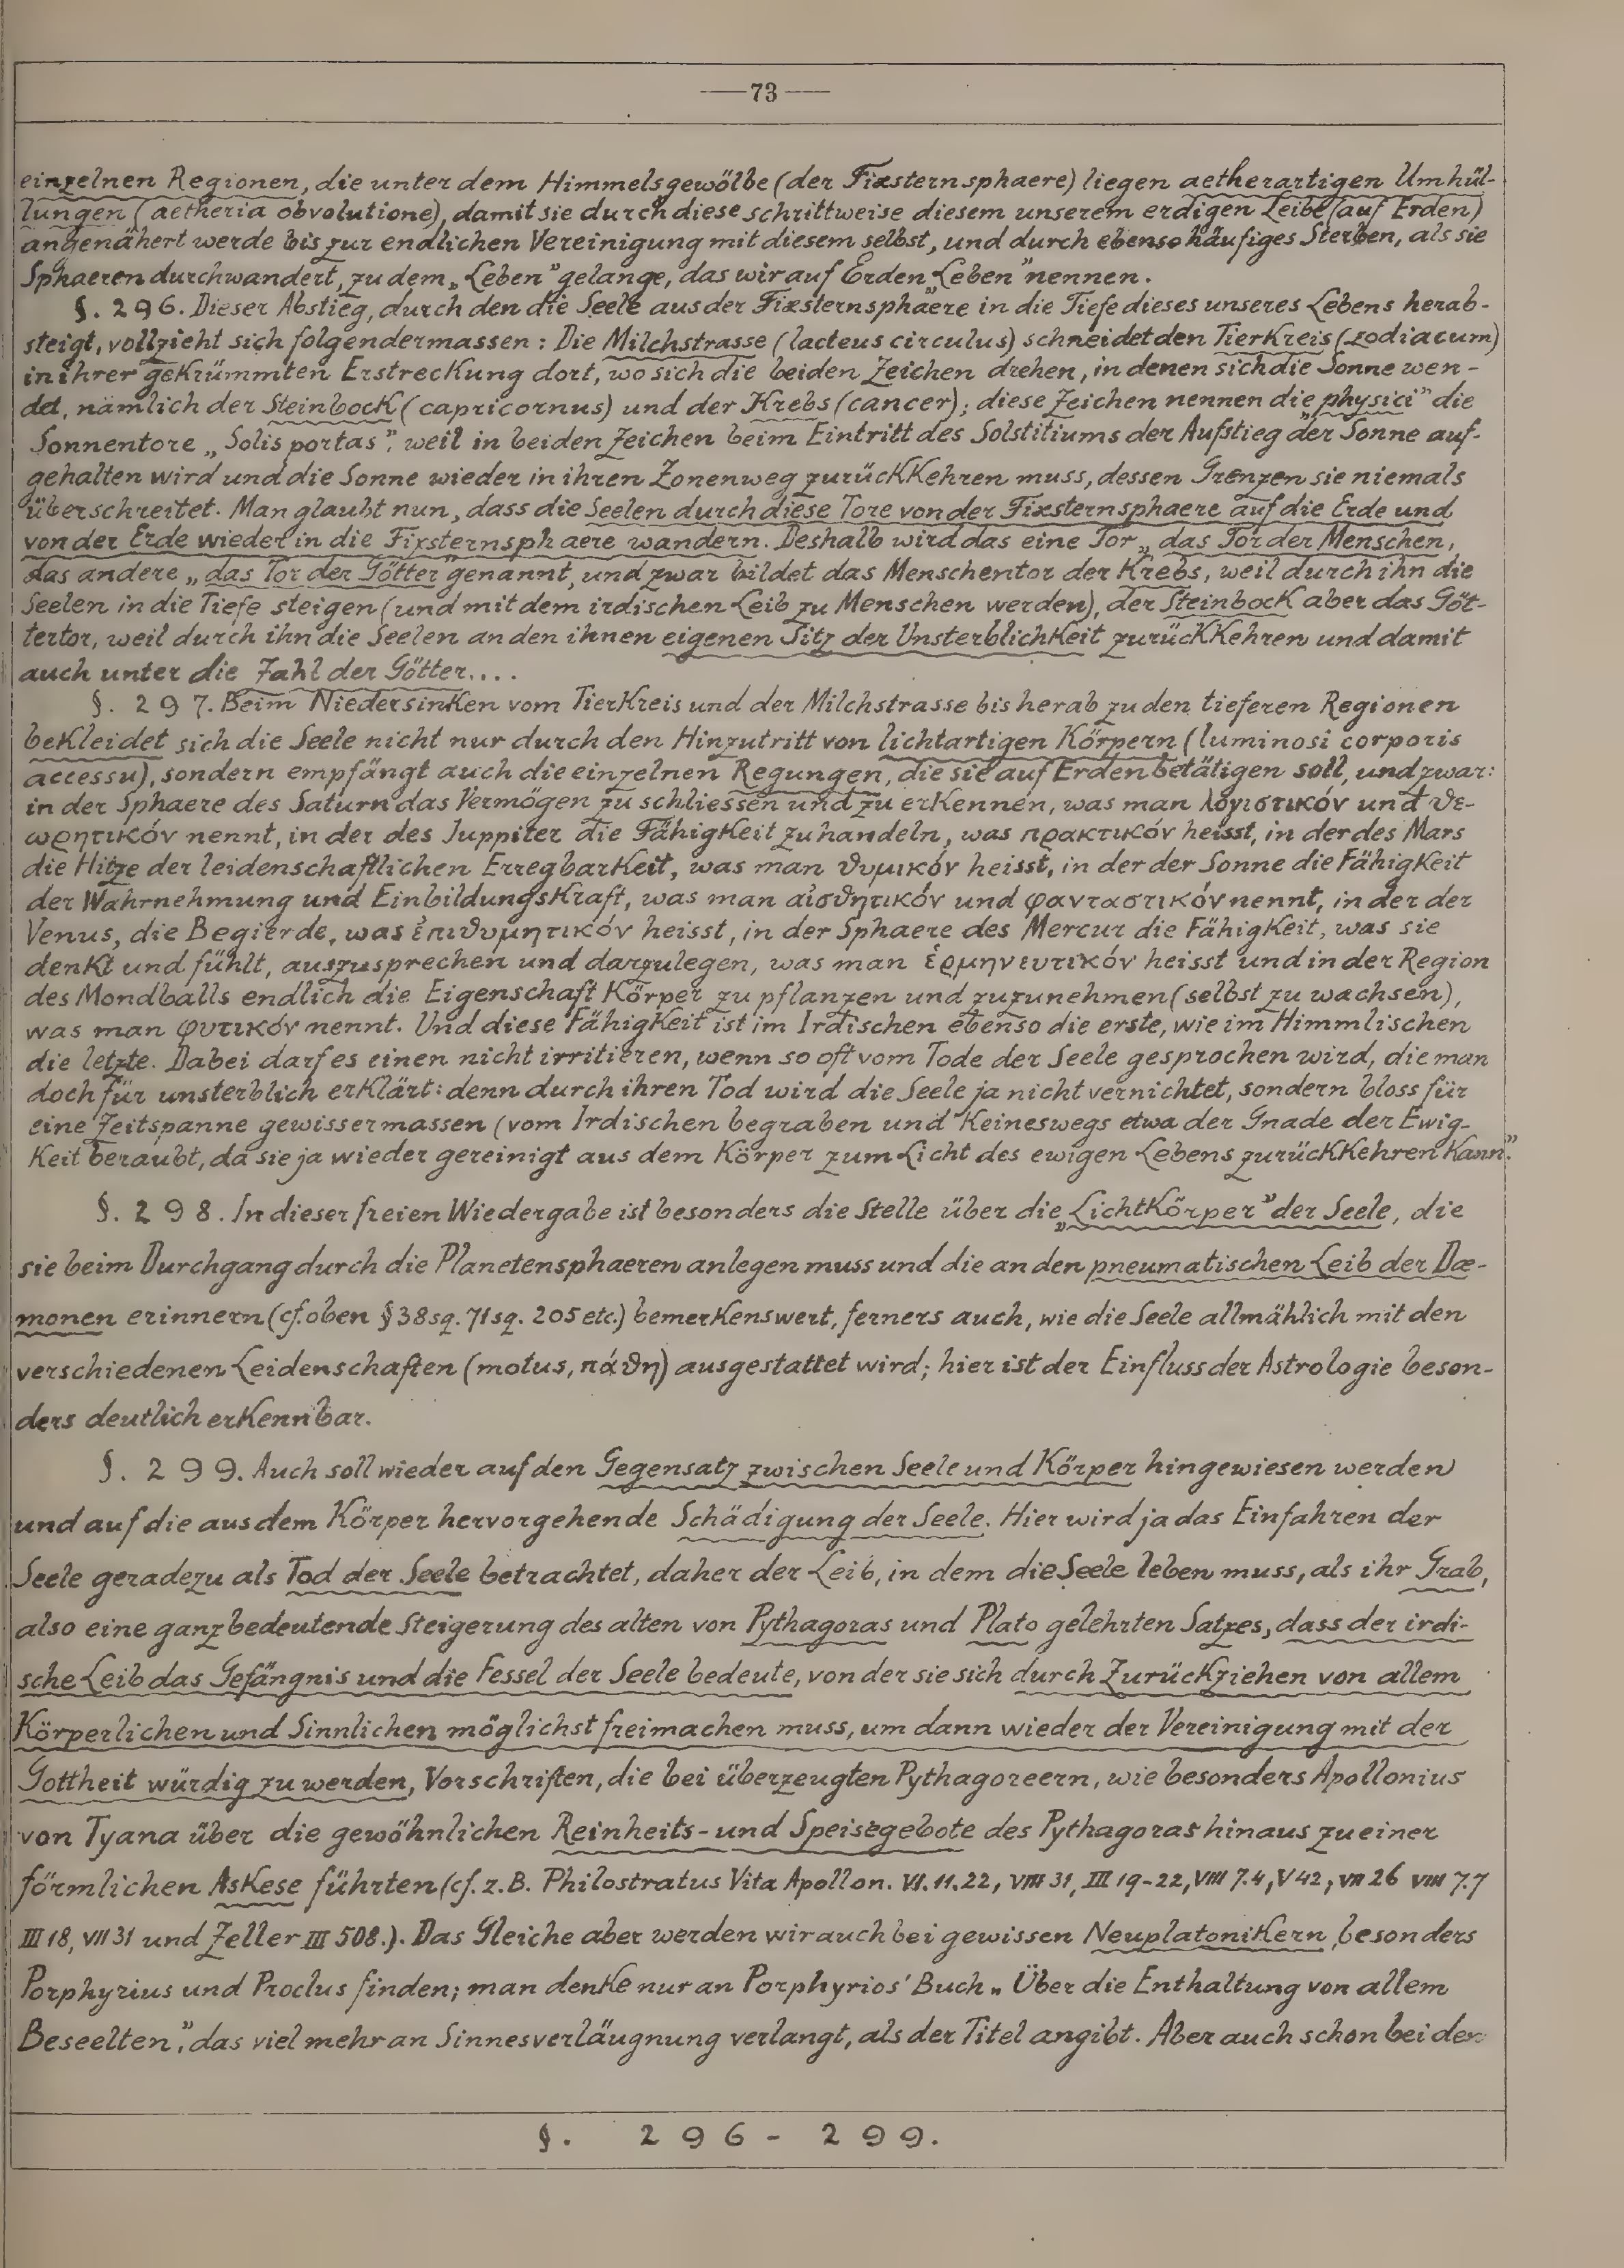 —73—
einzelnen Regionen, die unter dem Himmelsgewölbe (der Fixsternsphaere) liegen aetherartigen Umhül-
lungen (aetheria obvolutione), damit sie durch diese schrittweise diesem unserem erdigen Leibe (auf Erden)
angenähert werde bis zur endlichen Vereinigung mit diesem selbst, und durch ebenso häufiges Sterben, als sie
Sphaeren durchwandert, zu dem „Leben” gelange, das wir auf Erden „Leben” nennen.
§. 296. Dieser Abstieg, durch den die Seele aus der Fixsternsphaere in die Tiefe dieses unseres Lebens herab-
steigt, vollzieht sich folgendermassen: Die Milchstrasse (lacteus circulus) schneidet den Tierkreis (zodiacum)
in ihrer gekrümmten Erstreckung dort, wo sich die beiden Zeichen drehen, in denen sich die Sonne wen-
det, nämlich der Steinbock (capricornus) und der Krebs (cancer); diese Zeichen nennen die „physici” die
Sonnentore „Solis portas”, weil in beiden Zeichen beim Eintritt des Solstitiums der Aufstieg der Sonne auf-
gehalten wird und die Sonne wieder in ihren Zonenweg zurückkehren muss, dessen Grenzen sie niemals
überschreitet. Man glaubt nun, dass die Seelen durch diese Tore von der Fixsternsphaere auf die Erde und
von der Erde wieder in die Fixsternsphaere wandern. Deshalb wird das eine Tor „das Tor der Menschen,
das andere „das Tor der Götter” genannt, und zwar bildet das Menschentor der Krebs, weil durch ihn die
Seelen in die Tiefe steigen (und mit dem irdischen Leib zu Menschen werden), der Steinbock aber das Göt-
tertor, weil durch ihn die Seelen an den ihnen eigenen Sitz der Unsterblichkeit zurückkehren und damit
auch unter die Zahl der Götter....
§. 297. Beim Niedersinken vom Tierkreis und der Milchstrasse bis herab zu den tieferen Regionen
bekleidet sich die Seele nicht nur durch den Hinzutritt von lichtartigen Körpern (luminosi corporis
accessu), sondern empfängt auch die einzelnen Regungen, die sie auf Erden betätigen soll, und zwar:
in der Sphaere des Saturn das Vermögen zu schliessen und zu erkennen, was man λογιστικόν und θε-
ωρητικόν nennt, in der des Juppiter die Fähigkeit zu handeln, was πρακτικόν heisst, in der des Mars
die Hitze der leidenschaftlichen Erregbarkeit, was man θυμικόν heisst, in der der Sonne die Fähigkeit
der Wahrnehmung und Einbildungskraft, was man αἰσθητικόν und φανταστικόν nennt, in der der
Venus, die Begierde, was ἐπιθυμητικόν heisst, in der Sphaere des Mercur die Fähigkeit, was sie
denkt und fühlt, auszusprechen und darzulegen, was man ἑρμηνευτικόν heisst und in der Region
des Mondballs endlich die Eigenschaft Körper zu pflanzen und zuzunehmen (selbst zu wachsen),
was man φυτικόν nennt. Und diese Fähigkeit ist im Irdischen ebenso die erste, wie im Himmlischen
die letzte. Dabei darf es einen nicht irritieren, wenn so oft vom Tode der Seele gesprochen wird, die man
doch für unsterblich erklärt: denn durch ihren Tod wird die Seele ja nicht vernichtet, sondern bloss für
eine Zeitspanne gewissermassen (vom Irdischen begraben und keineswegs etwa der Gnade der Ewig-
keit beraubt, da sie ja wieder gereinigt aus dem Körper zum Licht des ewigen Lebens zurückkehren kann.”
§. 298. In dieser freien Wiedergabe ist besonders die Stelle über die „Lichtkörper” der Seele, die
sie beim Durchgang durch die Planetensphaeren anlegen muss und die an den pneumatischen Leib der Dæ-
monen erinnern (cf. oben § 38 sq. 71 sq. 205 etc.) bemerkenswert, ferners auch, wie die Seele allmählich mit den
verschiedenen Leidenschaften (motus, πάθη) ausgestattet wird; hier ist der Einfluss der Astrologie beson-
ders deutlich erkennbar.
§. 299. Auch soll wieder auf den Gegensatz zwischen Seele und Körper hingewiesen werden
und auf die aus dem Körper hervorgehende Schädigung der Seele. Hier wird ja das Einfahren der
Seele geradezu als Tod der Seele betrachtet, daher der Leib, in dem die Seele leben muss, als ihr Grab,
also eine ganz bedeutende Steigerung des alten von Pythagoras und Plato gelehrten Satzes, dass der irdi-
sche Leib das Gefängnis und die Fessel der Seele bedeute, von der sie sich durch Zurückziehen von allem
Körperlichen und Sinnlichen möglichst freimachen muss, um dann wieder der Vereinigung mit der
Gottheit würdig zu werden, Vorschriften, die bei überzeugten Pythagoreern, wie besonders Apollonius
von Tyana über die gewöhnlichen Reinheits- und Speisegebote des Pythagoras hinaus zu einer
förmlichen Askese führten (cf. z.B. Philostratus Vita Apollon. VI. 11. 22, VIII 31, III 19-22, VIII 7.4, V 42, VII 26 VIII 7.7
III 18, VII 31 und Zeller III 508.). Das Gleiche aber werden wir auch bei gewissen Neuplatonikern, besonders
Porphyrius und Proclus finden; man denke nur an Porphyrios' Buch „Über die Enthaltung von allem
Beseelten”, das viel mehr an Sinnesverläugnung verlangt, als der Titel angibt. Aber auch schon bei den
§. 296-299.